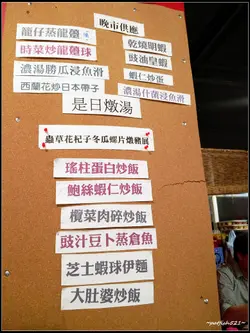 晚市供應
籠仔蒸龍躉
時菜炒龍躉球
濃湯勝瓜浸魚滑
西蘭花炒日本帶子
乾燒明蝦
豉油皇蝦
蝦仁炒蛋
濃湯什菌浸魚滑
是日燉湯
蟲草花杞子冬瓜螺片燉豬展
瑤柱蛋白炒飯
鮑絲蝦仁炒飯
欖菜肉碎炒飯
豉汁豆卜蒸倉魚
芝士蝦球伊麵
大肚婆炒飯
~patfish521~